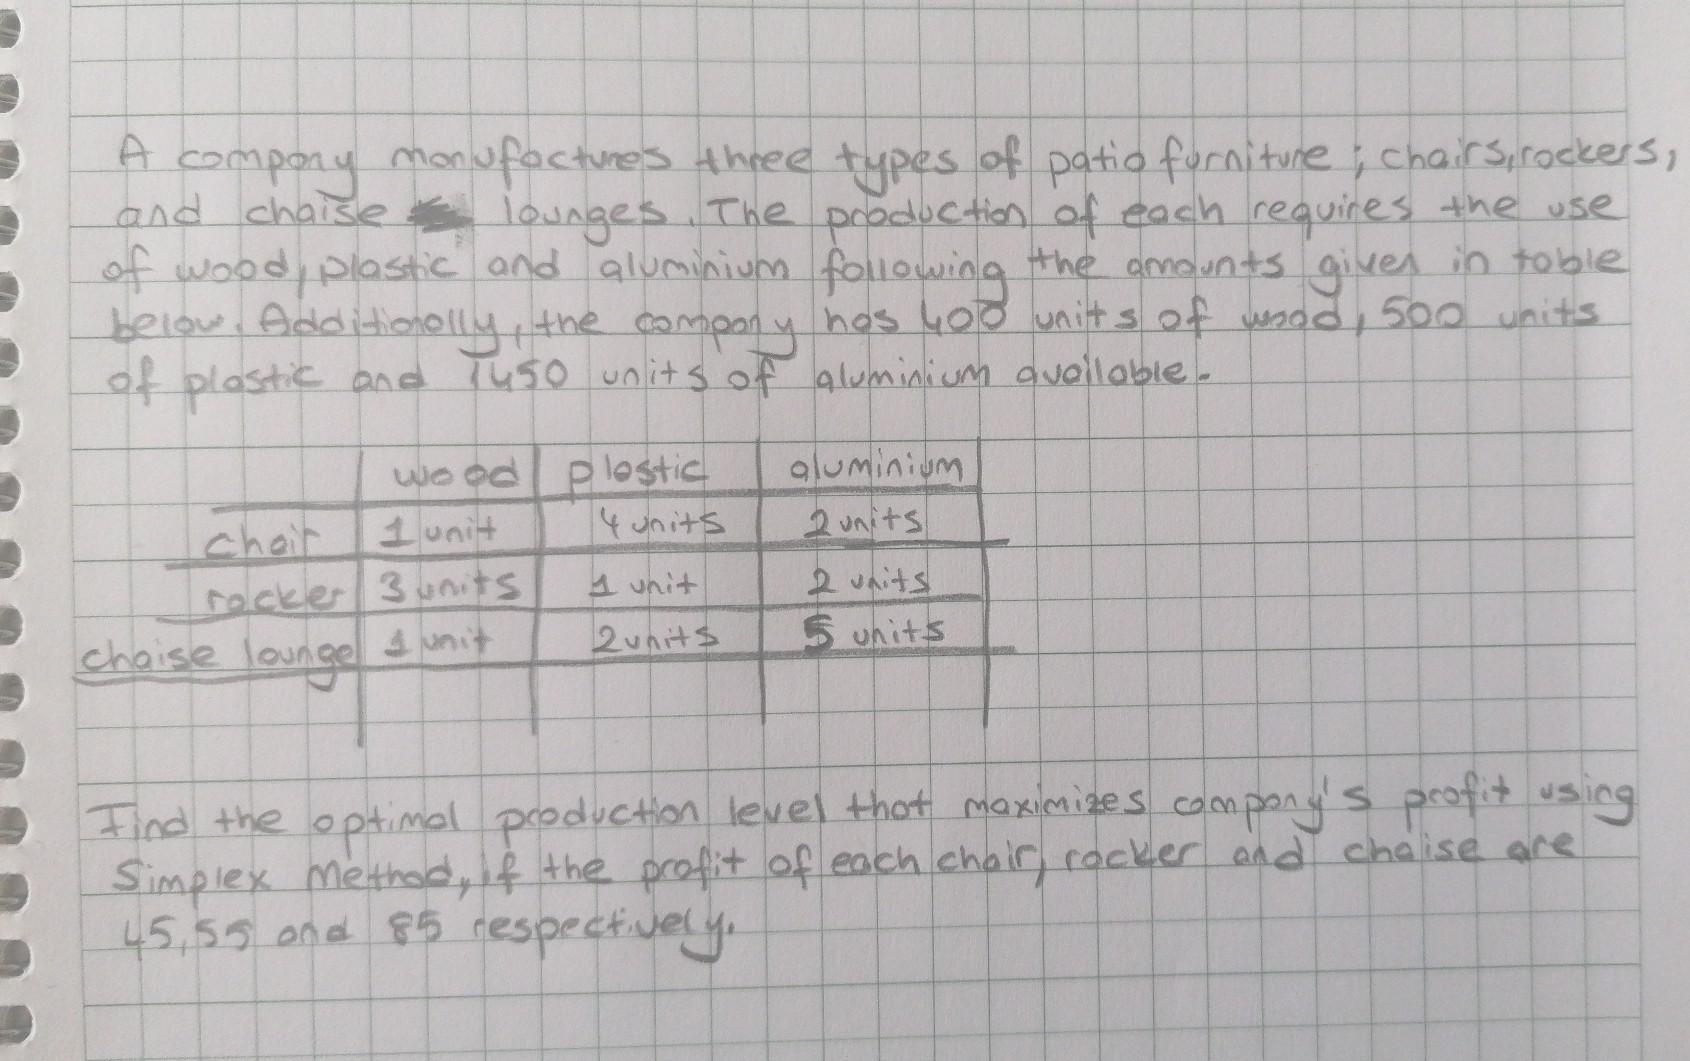 A company manufactures three types of patio furniture; chairs, rockers,
and chaise lounges. The production of each requires the use
of wood, plastic and aluminium following the amounts given in table
below. Additionally, the company has 400 units of wood, 500 units
of plastic and 1450 units of aluminium available.
wood plastic aluminium
chair 1 unit 4 units 2 units
rocker 3 units 1 unit 2 units
chaise lounge 1 unit 2 units 5 units
Find the optimal production level that maximizes company's profit using
Simplex Method, if the profit of each chair, rocker and chaise are
45, 55 and 85 respectively.